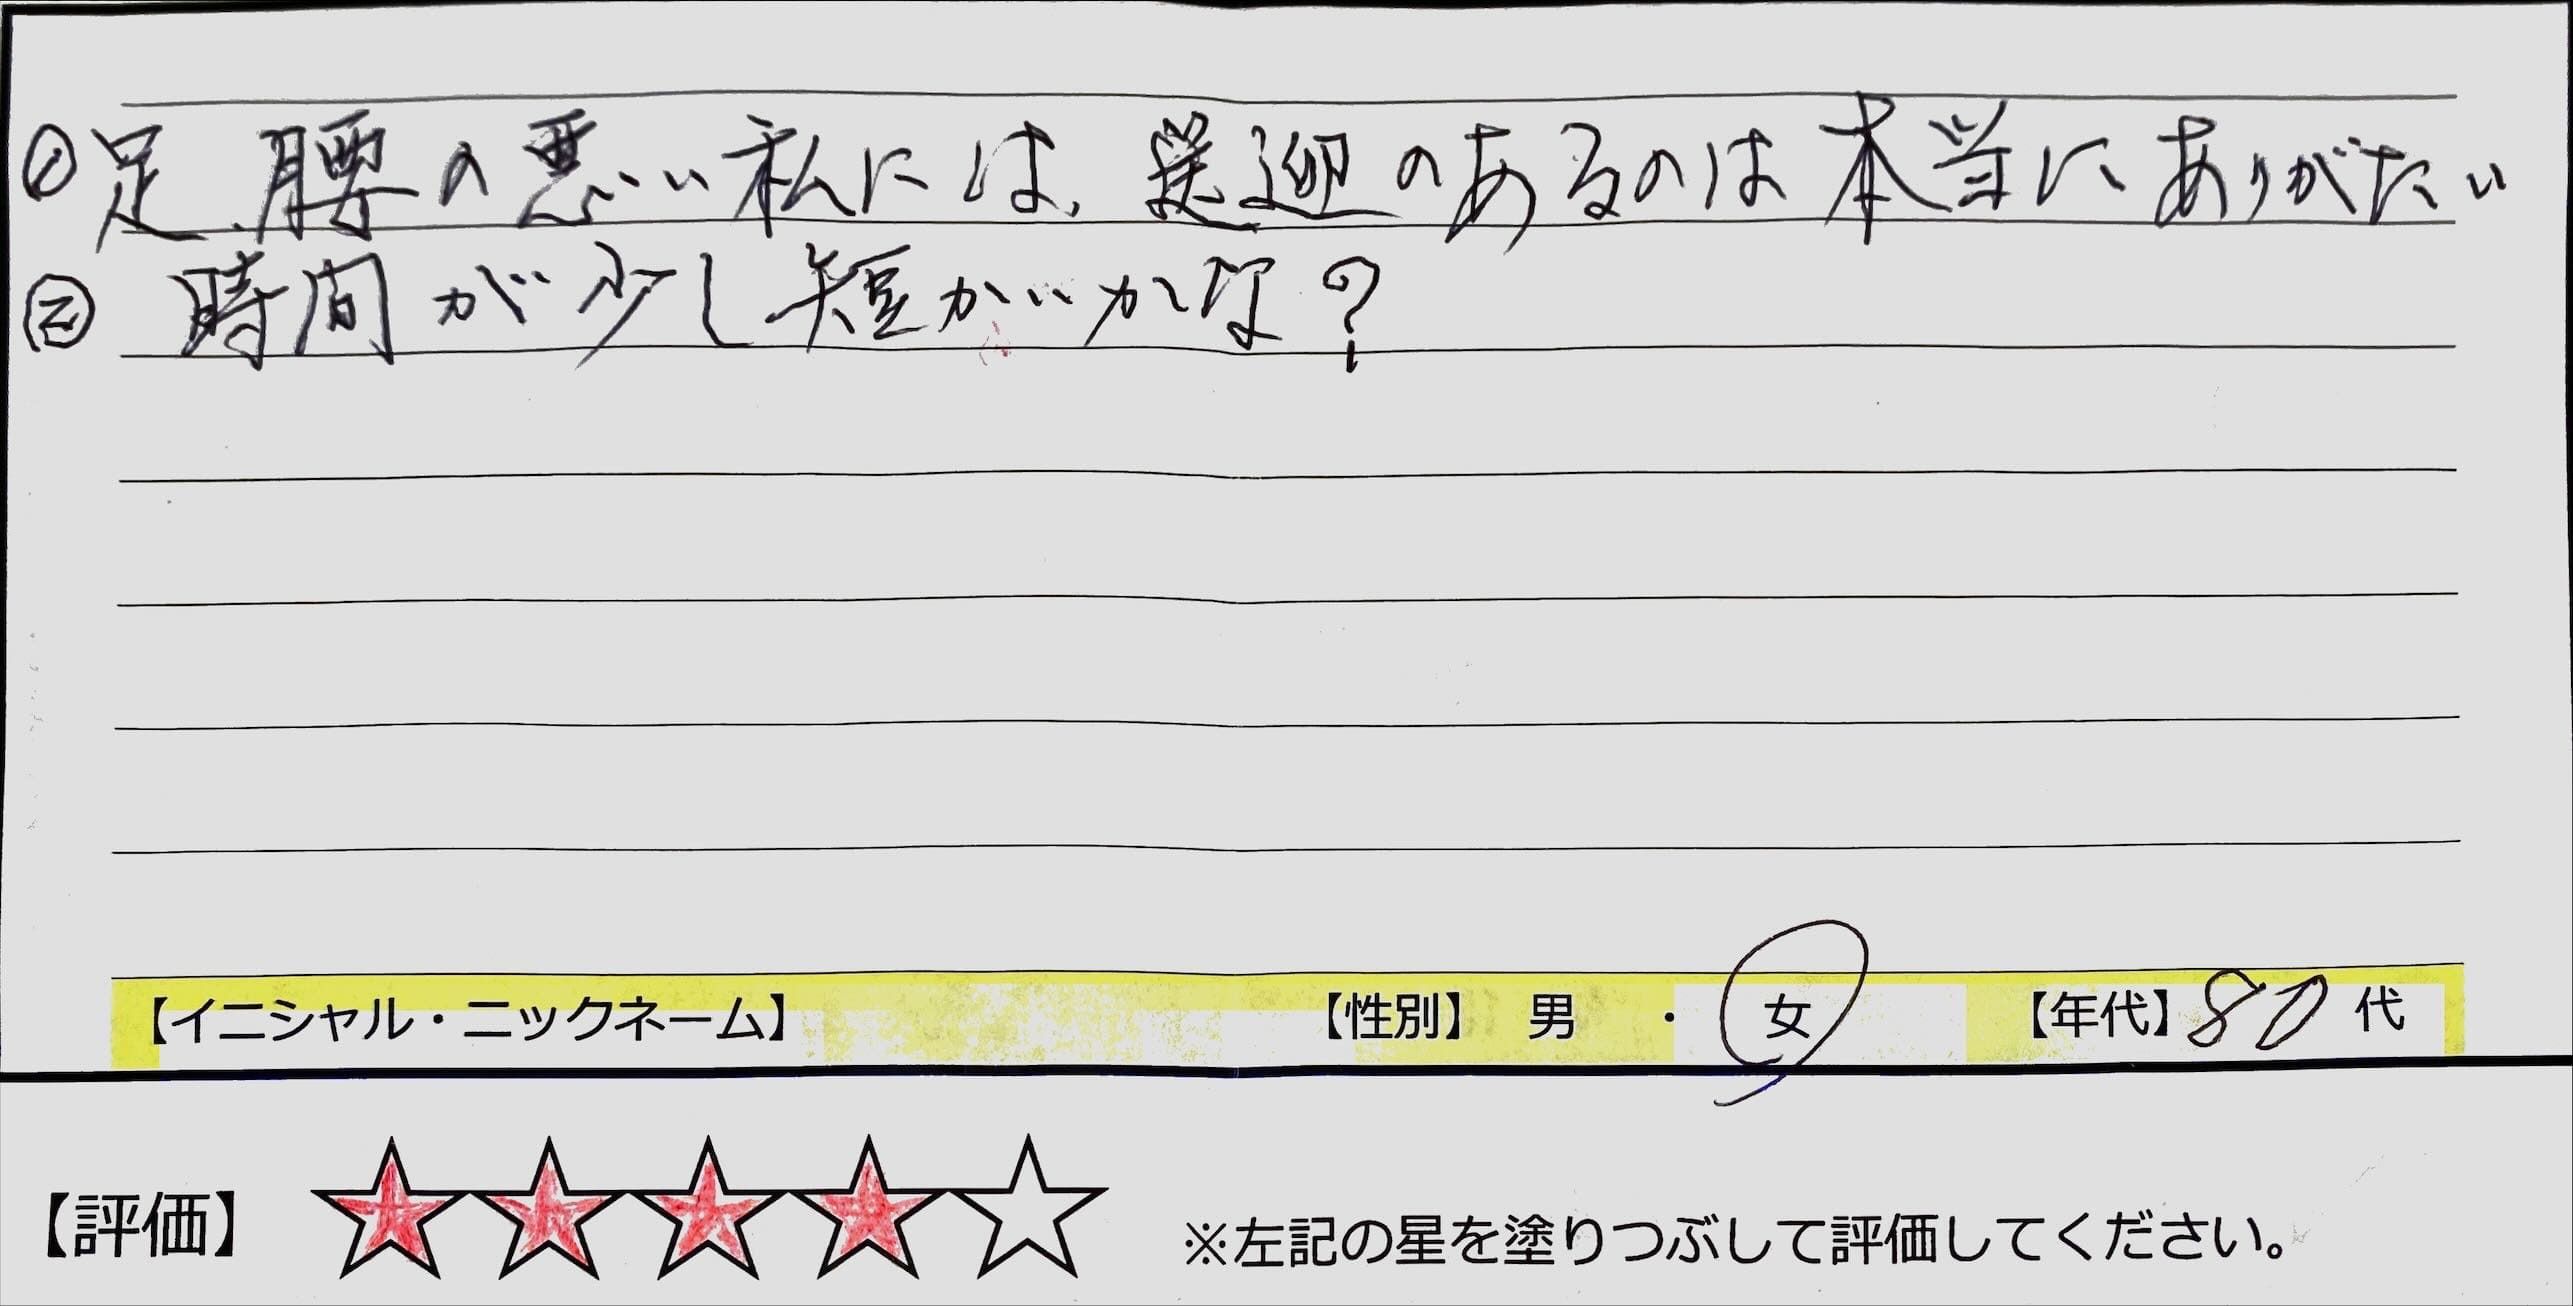 ①足、腰の悪い私には、送迎のあるのは本当にありがたい
② 時間が少し短かいかな?
【イニシャル・ニックネーム】 【性別】 男 ・ 女 【年代】80代
【評価】 ★★★★☆ ※左記の星を塗りつぶして評価してください。